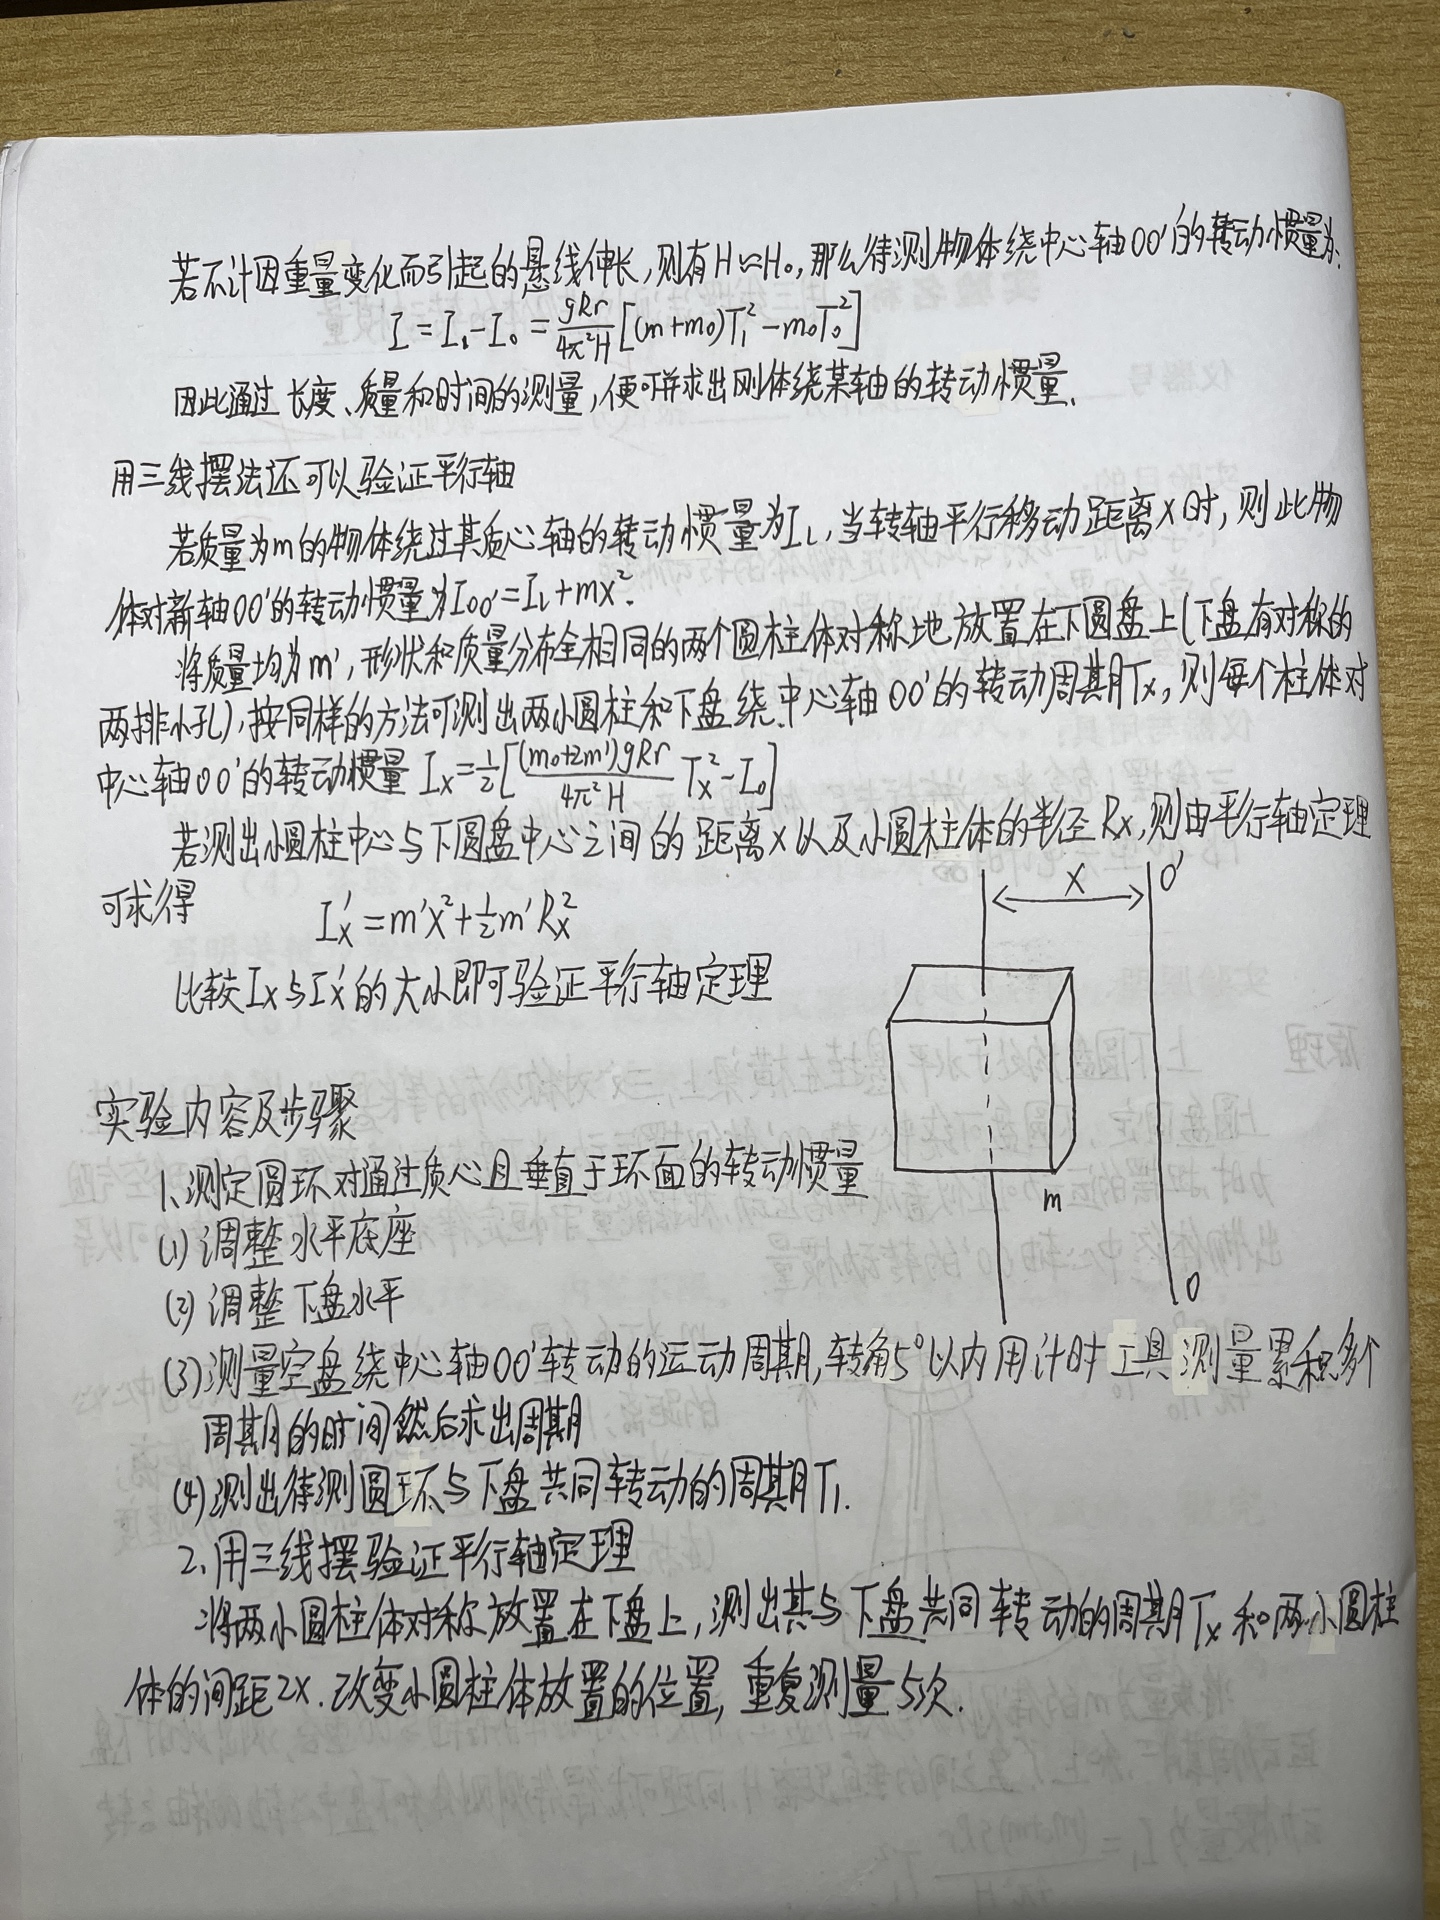 若不计因重量变化而引起的悬线伸长，则有H≈H₀，那么待测物体绕中心轴OO'的转动惯量为:
I = I₁-I₀ = gRr/4π²H [(m+m₀)T₁²-m₀T₀²]
因此通过长度、质量和时间的测量，便可并求出刚体绕某轴的转动惯量、
用三线摆法还可以验证平行轴
若质量为m的物体绕过其质心轴的转动惯量为I_L，当转轴平行移动距离x时，则此物
体对新轴OO'的转动惯量为I_OO'=I_L+mx².
将质量均为m'，形状和质量分布全相同的两个圆柱体对称地放置在下圆盘上(下盘有对称的
两排小孔)，按同样的方法可测出两小圆柱和下盘绕中心轴OO'的转动周期Tx，则每个柱体对
中心轴OO'的转动惯量 Ix=½[(m₀+2m')gRr/4π²H Tx²-I₀]
若测出小圆柱中心与下圆盘中心之间的距离x以及小圆柱体的半径Rx，则由平行轴定理
可求得 Ix'=m'x²+½m'Rx²
比较Ix与Ix'的大小即可验证平行轴定理
x
O'
m
O
实验内容及步骤
1、测定圆环对通过质心且垂直于环面的转动惯量
(1) 调整水平底座
(2) 调整下盘水平
(3) 测量空盘绕中心轴OO'转动的运动周期，转角5°以内用计时工具测量累积多个
周期的时间然后求出周期
(4) 测出待测圆环与下盘共同转动的周期T₁.
2、用三线摆验证平行轴定理
将两小圆柱体对称放置在下盘上，测出其与下盘共同转动的周期Tx和两小圆柱
体的间距2x.改变小圆柱体放置的位置，重复测量5次.